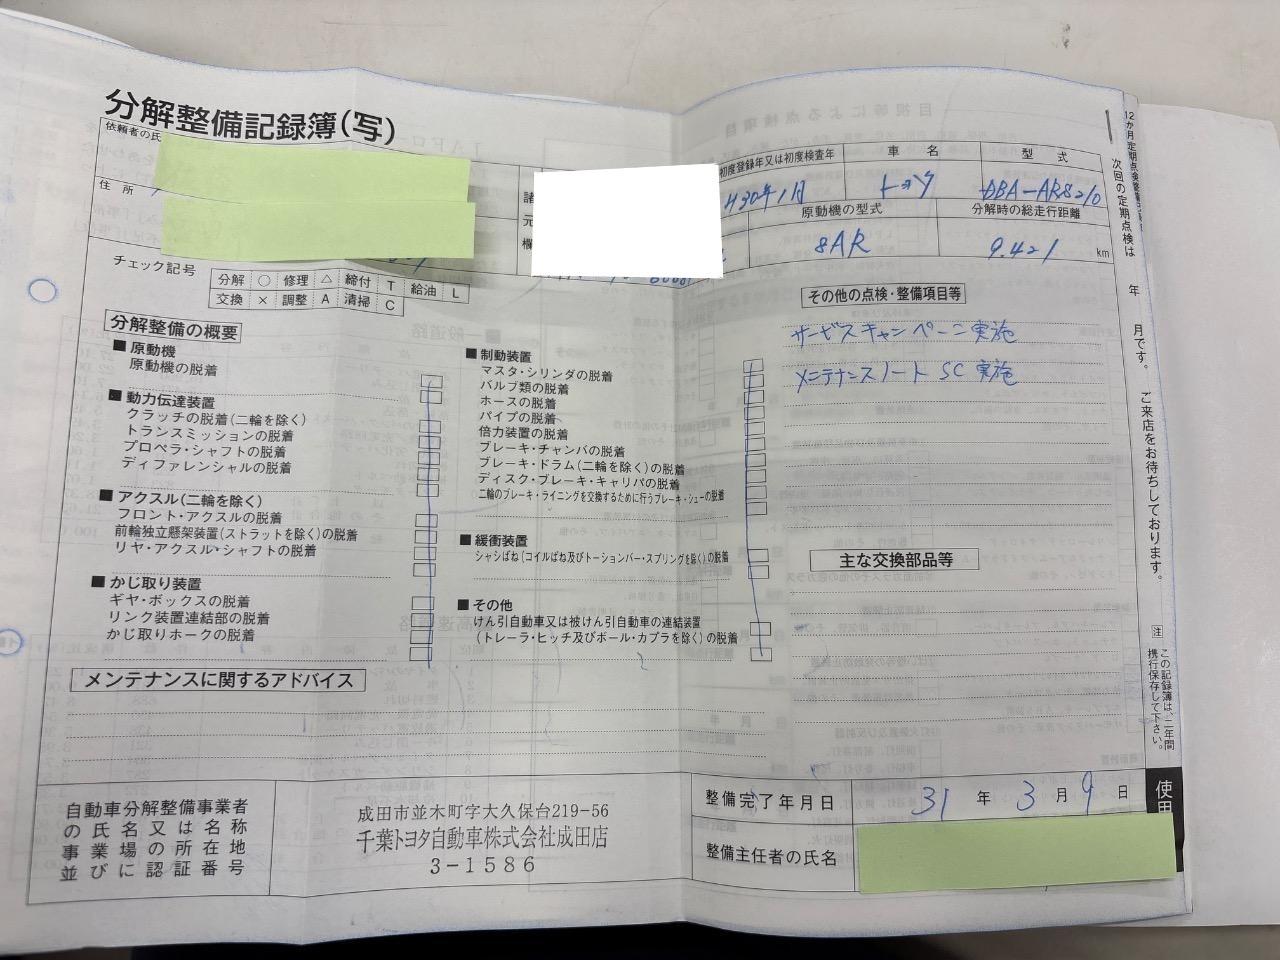 分解整備記録簿(写)
依頼者の氏
住所
諸
元
欄
初度登録年又は初度検査年
車名
型式
H30年1月
トヨタ
DBA-ARS210
原動機の型式
分解時の総走行距離
8AR
9,421 km
チェック記号
分解 ○ 修理 △ 締付 T 給油 L
交換 × 調整 A 清掃 C
分解整備の概要
■ 原動機
原動機の脱着
■ 動力伝達装置
クラッチの脱着(二輪を除く)
トランスミッションの脱着
プロペラ・シャフトの脱着
ディファレンシャルの脱着
■ アクスル(二輪を除く)
フロント・アクスルの脱着
前輪独立懸架装置(ストラットを除く)の脱着
リヤ・アクスル・シャフトの脱着
■ かじ取り装置
ギヤ・ボックスの脱着
リンク装置連結部の脱着
かじ取りホークの脱着
■ 制動装置
マスタ・シリンダの脱着
バルブ類の脱着
ホースの脱着
パイプの脱着
倍力装置の脱着
ブレーキ・チャンバの脱着
ブレーキ・ドラム(二輪を除く)の脱着
ディスク・ブレーキ・キャリパの脱着
二輪のブレーキ・ライニングを交換するために行うブレーキ・シューの脱着
■ 緩衝装置
シャシばね(コイルばね及びトーションバー・スプリングを除く)の脱着
■ その他
けん引自動車又は被けん引自動車の連結装置
(トレーラ・ヒッチ及びボール・カプラを除く)の脱着
その他の点検・整備項目等
サービスキャンペーン実施
メンテナンスノート SC 実施
主な交換部品等
メンテナンスに関するアドバイス
自動車分解整備事業者
の氏名又は名称
事業場の所在地
並びに認証番号
成田市並木町字大久保台219-56
千葉トヨタ自動車株式会社成田店
3-1586
整備完了年月日
31年3月9日
整備主任者の氏名
次回の定期点検は 年 月です。 ご来店をお待ちしております。
注 この記録簿は、二年間
携行保存して下さい。
使用